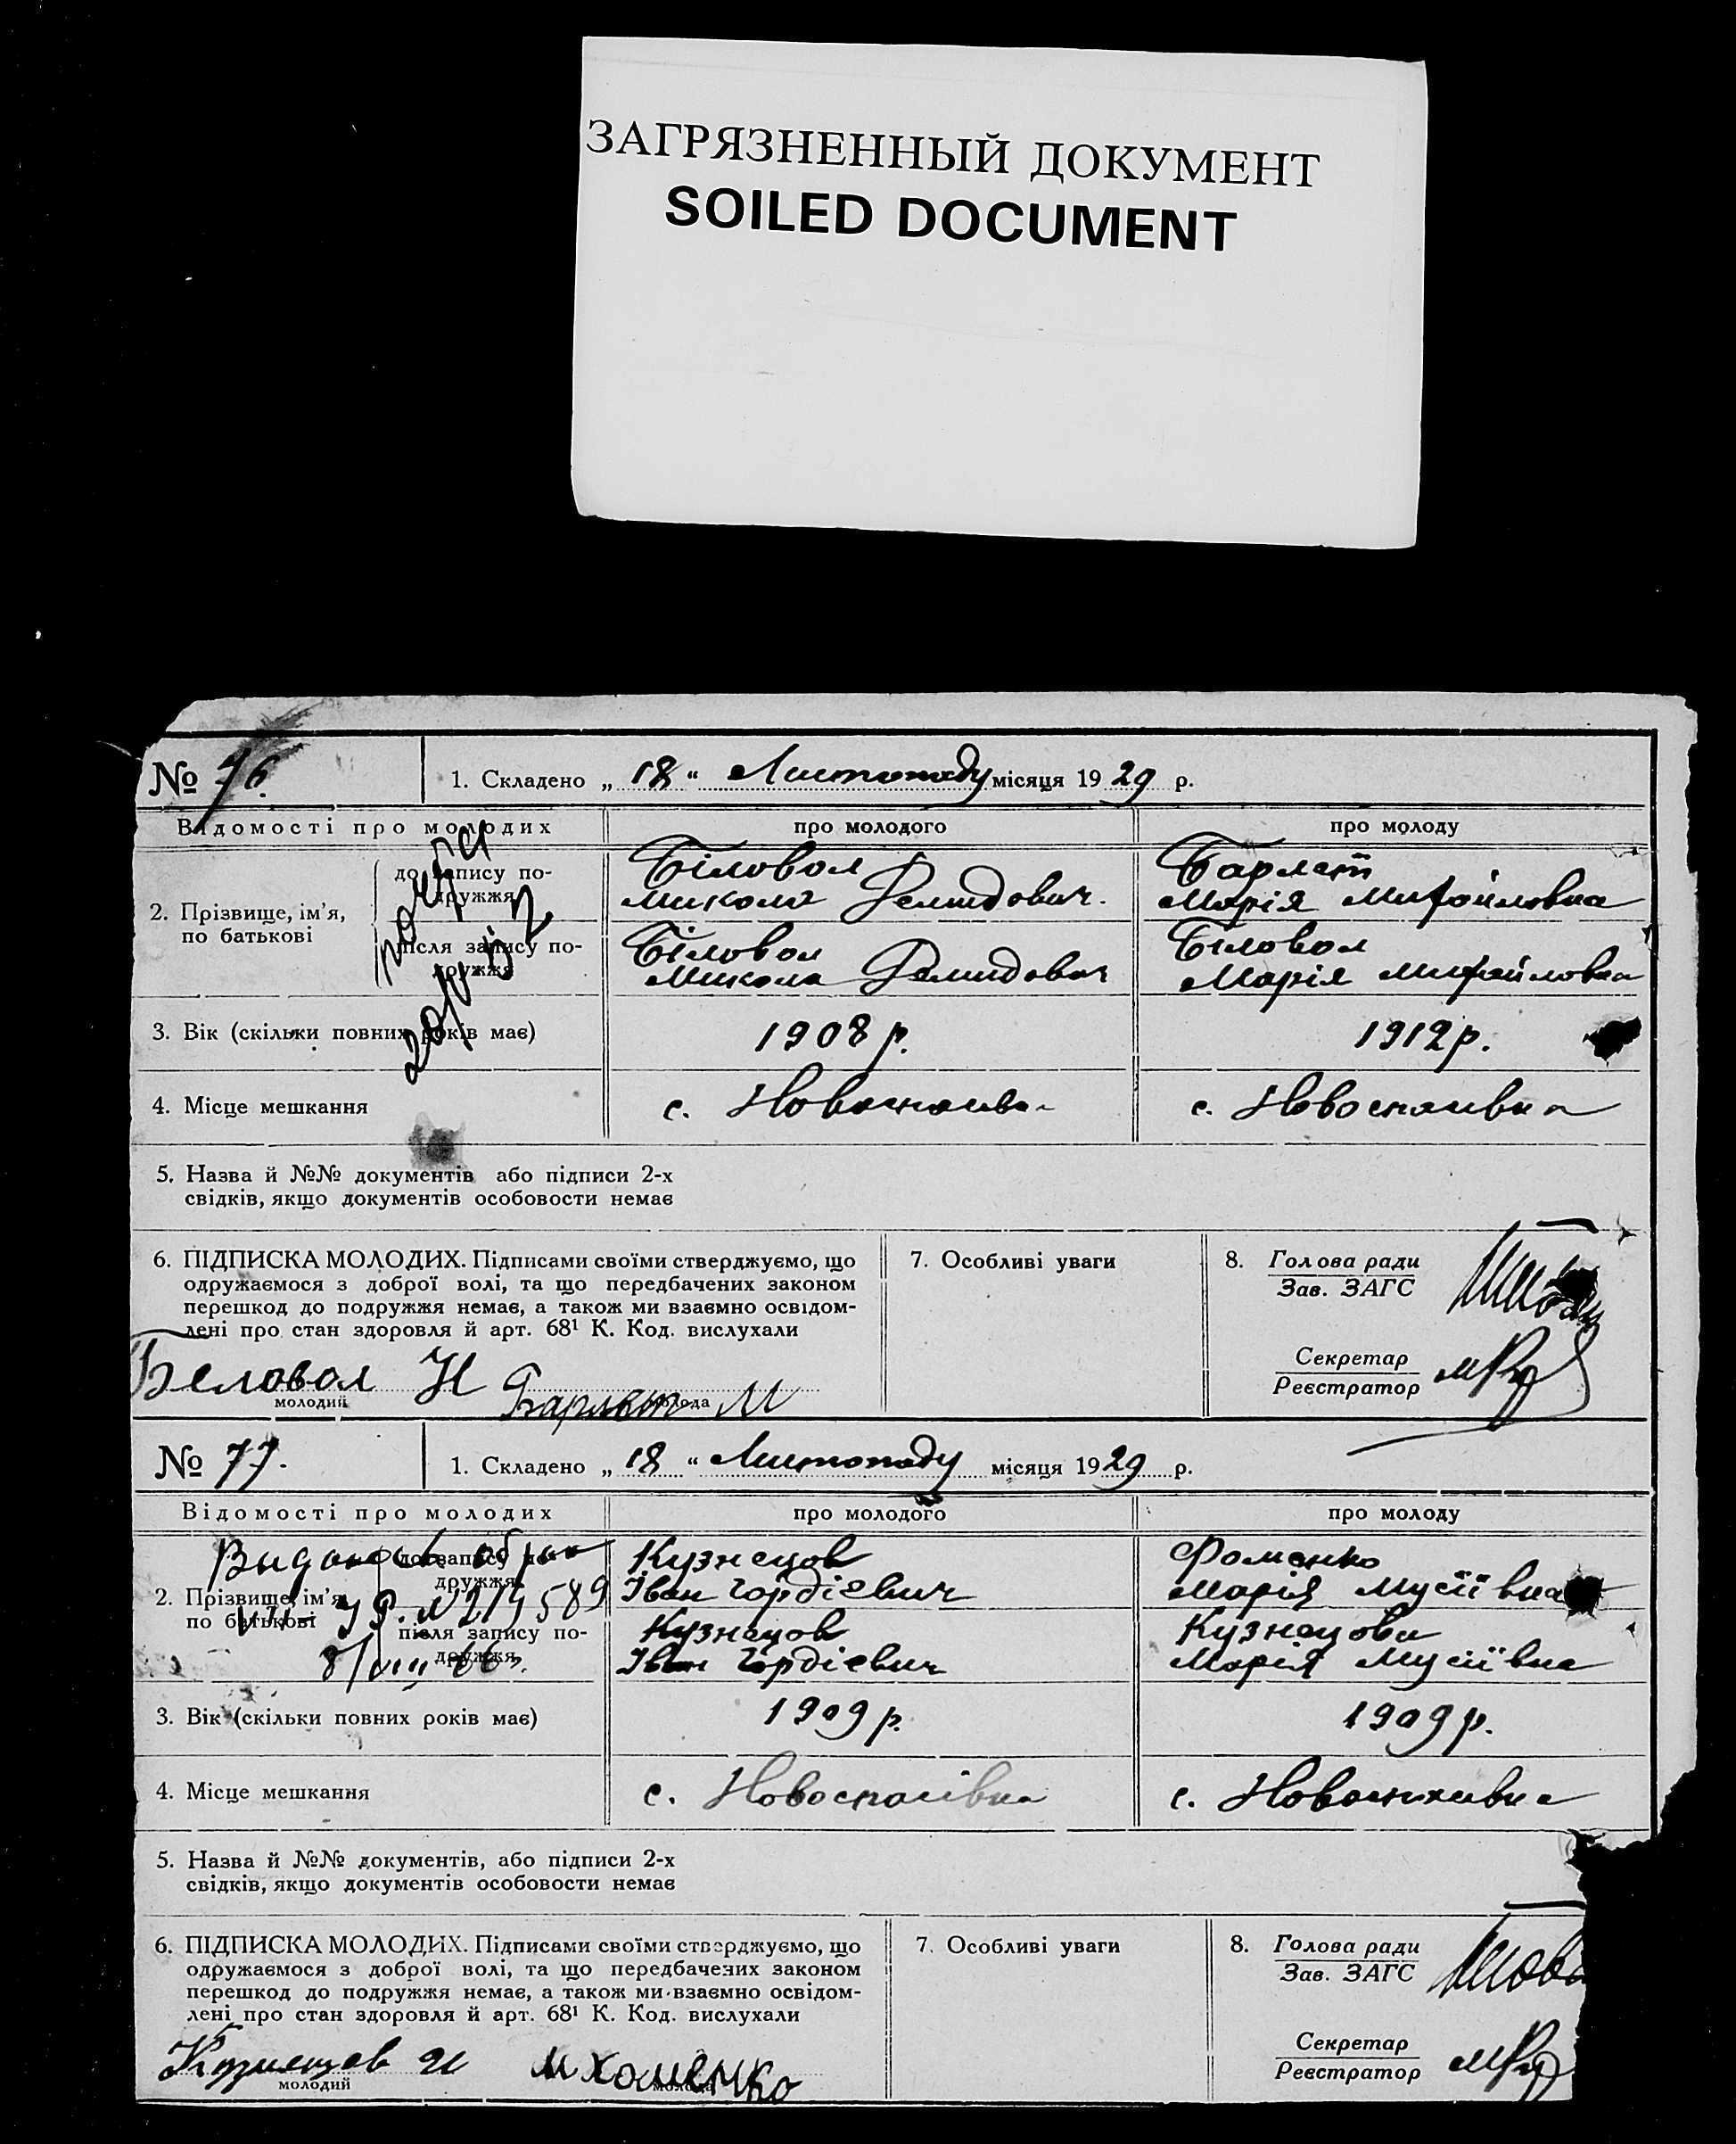 ЗАГРЯЗНЕННЫЙ ДОКУМЕНТ
SOILED DOCUMENT
№ 76. 1. Складено „ 18 “ Листопаду місяця 1929 р.
Відомості про молодих про молодого про молоду
2. Прізвище, ім'я, по батькові
до запису подружжя
Біловол
Микола Демидович.
Барлет
Марія Михайловна
після запису подружжя
Біловол
Микола Демидович
Біловол
Марія Михайловна
3. Вік (скільки повних років має) 1908 р. 1912 р.
4. Місце мешкання с. Новоспасівка с. Новоспасівка
5. Назва й №№ документів або підписи 2-х
свідків, якщо документів особовости немає
6. ПІДПИСКА МОЛОДИХ. Підписами своїми стверджуємо, що
одружаємося з доброї волі, та що передбачених законом
перешкод до подружжя немає, а також ми взаємно освідом-
лені про стан здоровля й арт. 68¹ К. Код. вислухали
Беловол Н Барлет М
молодий молода
7. Особливі уваги
8. Голова ради
Зав. ЗАГС
Секретар
Реєстратор
№ 77. 1. Складено „ 18 “ Листопаду місяця 1929 р.
Відомості про молодих про молодого про молоду
2. Прізвище, ім'я, по батькові
до запису подружжя
Кузнецов
Іван Гордієвич
Фоменко
Марія Мусіївна
після запису подружжя
Кузнецов
Іван Гордієвич
Кузнецова
Марія Мусіївна
№ 214589
3. Вік (скільки повних років має) 1909 р. 1909 р.
4. Місце мешкання с. Новоспасівка с. Новоспасівка
5. Назва й №№ документів, або підписи 2-х
свідків, якщо документів особовости немає
6. ПІДПИСКА МОЛОДИХ. Підписами своїми стверджуємо, що
одружаємося з доброї волі, та що передбачених законом
перешкод до подружжя немає, а також ми взаємно освідом-
лені про стан здоровля й арт. 68¹ К. Код. вислухали
Кузнецов И М Хоменко
молодий молода
7. Особливі уваги
8. Голова ради
Зав. ЗАГС
Секретар
Реєстратор